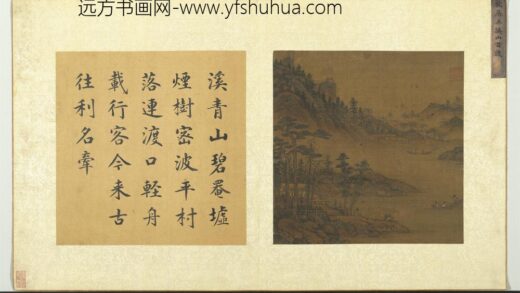 远方书画网-www.yfshuhua.com
溪青山碧罨墟
煙樹密波平村
落連渡口輕舟
載行客今来古
往利名牽